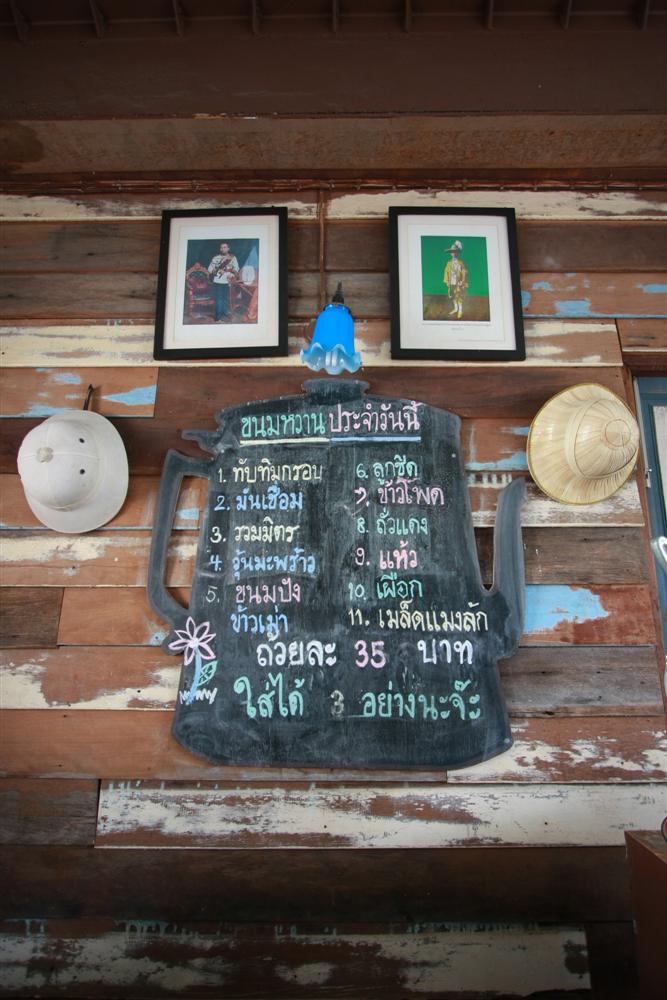 ขนมหวานประจำวันนี้
1. ทับทิมกรอบ
2. มันเชื่อม
3. รวมมิตร
4. วุ้นมะพร้าว
5. ขนมปัง
ข้าวเม่า
6. ลูกชิด
7. ข้าวโพด
8. ถั่วแดง
9. แห้ว
10. เผือก
11. เมล็ดแมงลัก
ถ้วยละ 35 บาท
ใส่ได้ 3 อย่างนะจ๊ะ